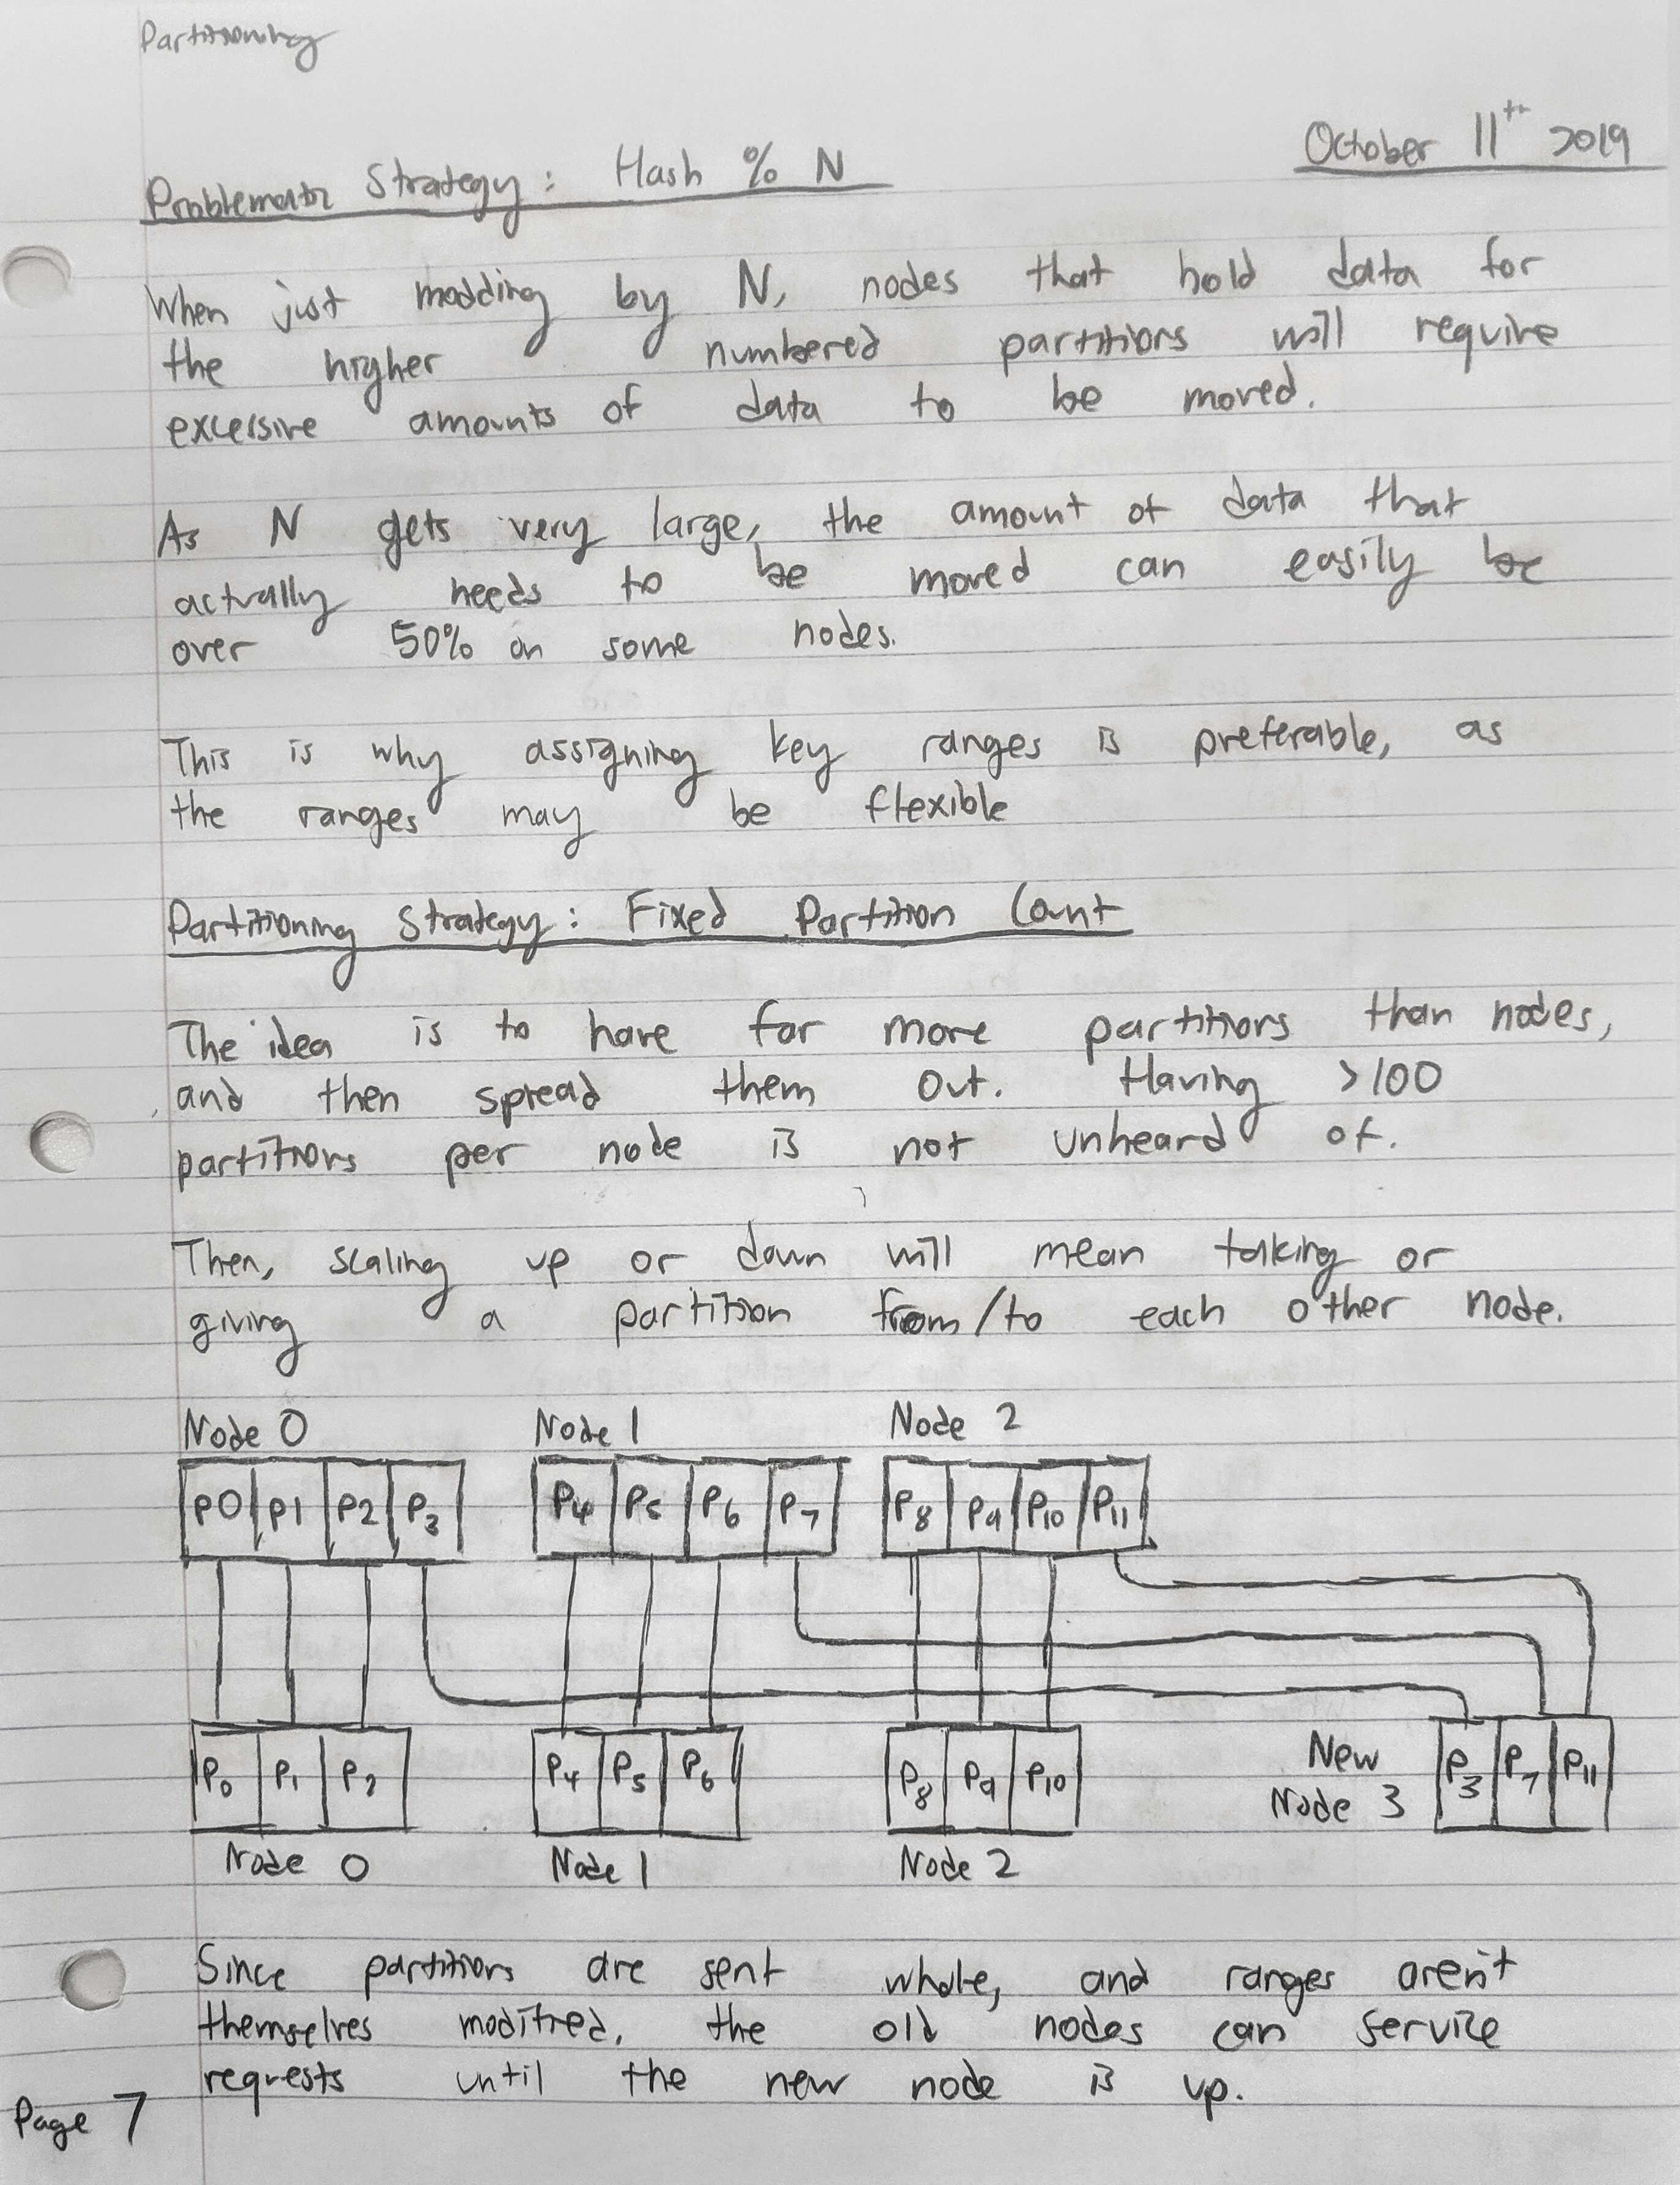 Partitioning
October 11th 2019
Problematic Strategy: Hash % N
When just modding by N, nodes that hold data for
the higher numbered partitions will require
excessive amounts of data to be moved.
As N gets very large, the amount of data that
actually needs to be moved can easily be
over 50% on some nodes.
This is why assigning key ranges is preferable, as
the ranges may be flexible
Partitioning Strategy: Fixed Partition Count
The idea is to have far more partitions than nodes,
and then spread them out. Having >100
partitions per node is not unheard of.
Then, scaling up or down will mean talking or
giving a partition from/to each other node.
Node 0 Node 1 Node 2
P0 P1 P2 P3 P4 P5 P6 P7 P8 P9 P10 P11
P0 P1 P2 P4 P5 P6 P8 P9 P10 New Node 3 P3 P7 P11
Node 0 Node 1 Node 2
Since partitions are sent whole, and ranges aren't
themselves modified, the old nodes can service
requests until the new node is up.
Page 7